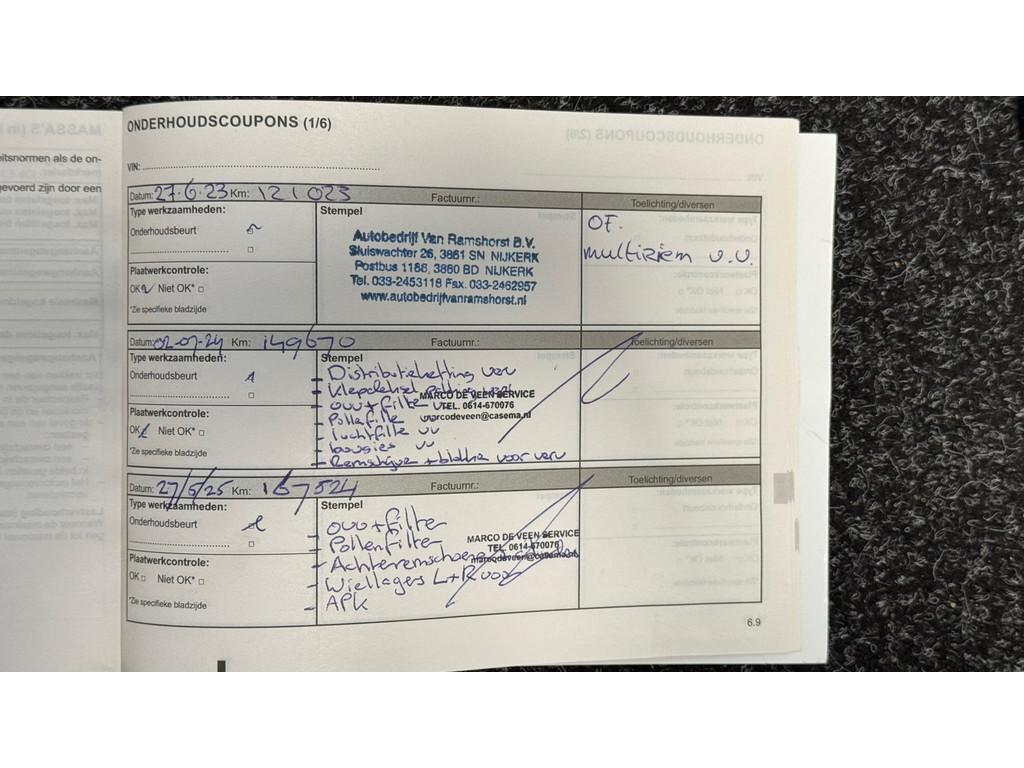 ONDERHOUDSCOUPONS (1/6)
eitsnormen als de on-
gevoerd zijn door een
VIN:
Datum: 27·6·23 Km: 121023 Factuurnr.: Toelichting/diversen
Type werkzaamheden:
Onderhoudsbeurt
Plaatwerkcontrole:
OK Niet OK*
*Zie specifieke bladzijde
Stempel
Autobedrijf Van Ramshorst B.V.
Sluiswachter 26, 3861 SN NIJKERK
Postbus 1168, 3860 BD NIJKERK
Tel. 033-2453118 Fax. 033-2462957
www.autobedrijfvanramshorst.nl
OF.
multiriem v.v.
Datum: 02-07-24 Km: 149670 Factuurnr.: Toelichting/diversen
Type werkzaamheden:
Onderhoudsbeurt
Plaatwerkcontrole:
OK Niet OK*
*Zie specifieke bladzijde
Stempel
- Distributieketting verv
- Klepdeksel
- olie + filter
- Pollenfilter
- luchtfilter vv
- bougies vv
- Remschijven + blokken voor verv
MARCO DE VEEN SERVICE
TEL. 0614-670076
marcodeveen@casema.nl
Datum: 27/5/25 Km: 167524 Factuurnr.: Toelichting/diversen
Type werkzaamheden:
Onderhoudsbeurt
Plaatwerkcontrole:
OK Niet OK*
*Zie specifieke bladzijde
Stempel
- olie + filter
- Pollenfilter
- Achterremschoenen
- Wiellagers L+R voor
- APK
MARCO DE VEEN SERVICE
TEL. 0614-670076
marcodeveen@casema.nl
6.9